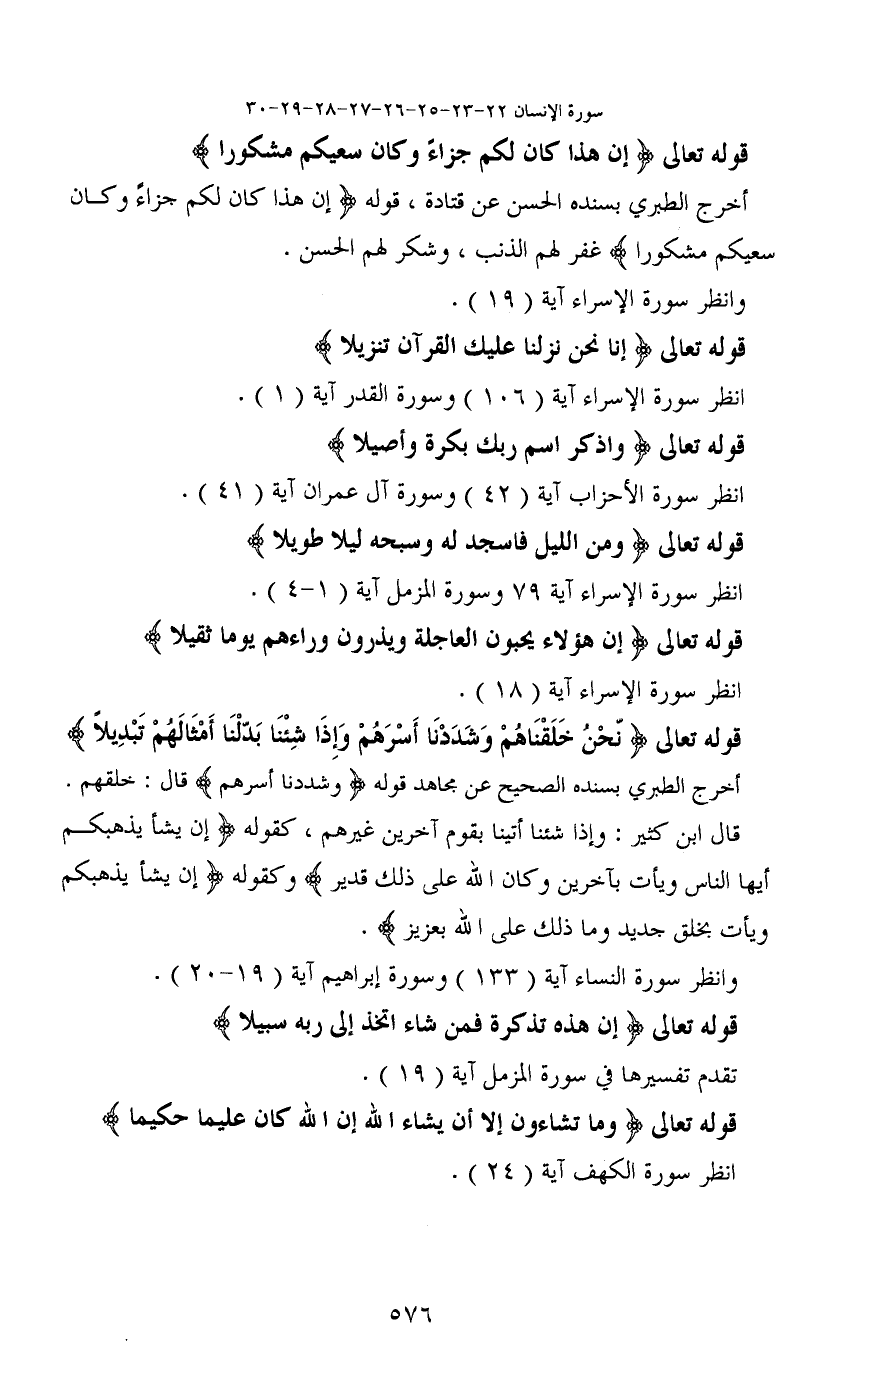 سورة الإنسان ٢٢-٢٣-٢٥-٢٦-٢٧-٢٨-٢٩-٣٠
قوله تعالى ﴿ إن هذا كان لكم جزاءً وكان سعيكم مشكورا ﴾
أخرج الطبري بسنده الحسن عن قتادة ، قوله ﴿ إن هذا كان لكم جزاءً وكـان
سعيكم مشكورا ﴾ غفر لهم الذنب ، وشكر لهم الحسن .
وانظر سورة الإسراء آية ( ١٩ ) .
قوله تعالى ﴿ إنا نحن نزلنا عليك القرآن تنزيلا ﴾
انظر سورة الإسراء آية ( ١٠٦ ) وسورة القدر آية ( ١ ) .
قوله تعالى ﴿ واذكر اسم ربك بكرة وأصيلا ﴾
انظر سورة الأحزاب آية ( ٤٢ ) وسورة آل عمران آية ( ٤١ ) .
قوله تعالى ﴿ ومن الليل فاسجد له وسبحه ليلا طويلا ﴾
انظر سورة الإسراء آية ٧٩ وسورة المزمل آية ( ١-٤ ) .
قوله تعالى ﴿ إن هؤلاء يحبون العاجلة ويذرون وراءهم يوما ثقيلا ﴾
انظر سورة الإسراء آية ( ١٨ ) .
قوله تعالى ﴿ نّحْنُ خَلَقْنَاهُمْ وَشَدَدْنَا أَسْرَهُمْ وَإِذَا شِئْنَا بَدّلْنَا أَمْثَالَهُمْ تَبْدِيلاً ﴾
أخرج الطبري بسنده الصحيح عن مجاهد قوله ﴿ وشددنا أسرهم ﴾ قال : خلقهم .
قال ابن كثير : وإذا شئنا أتينا بقوم آخرين غيرهم ، كقوله ﴿ إن يشأ يذهبكـم
أيها الناس ويأت بآخرين وكان الله على ذلك قدير ﴾ وكقوله ﴿ إن يشأ يذهبكم
ويأت بخلق جديد وما ذلك على الله بعزيز ﴾ .
وانظر سورة النساء آية ( ١٣٣ ) وسورة إبراهيم آية ( ١٩-٢٠ ) .
قوله تعالى ﴿ إن هذه تذكرة فمن شاء اتخذ إلى ربه سبيلا ﴾
تقدم تفسيرها في سورة المزمل آية ( ١٩ ) .
قوله تعالى ﴿ وما تشاءون إلا أن يشاء الله إن الله كان عليما حكيما ﴾
انظر سورة الكهف آية ( ٢٤ ) .
٥٧٦